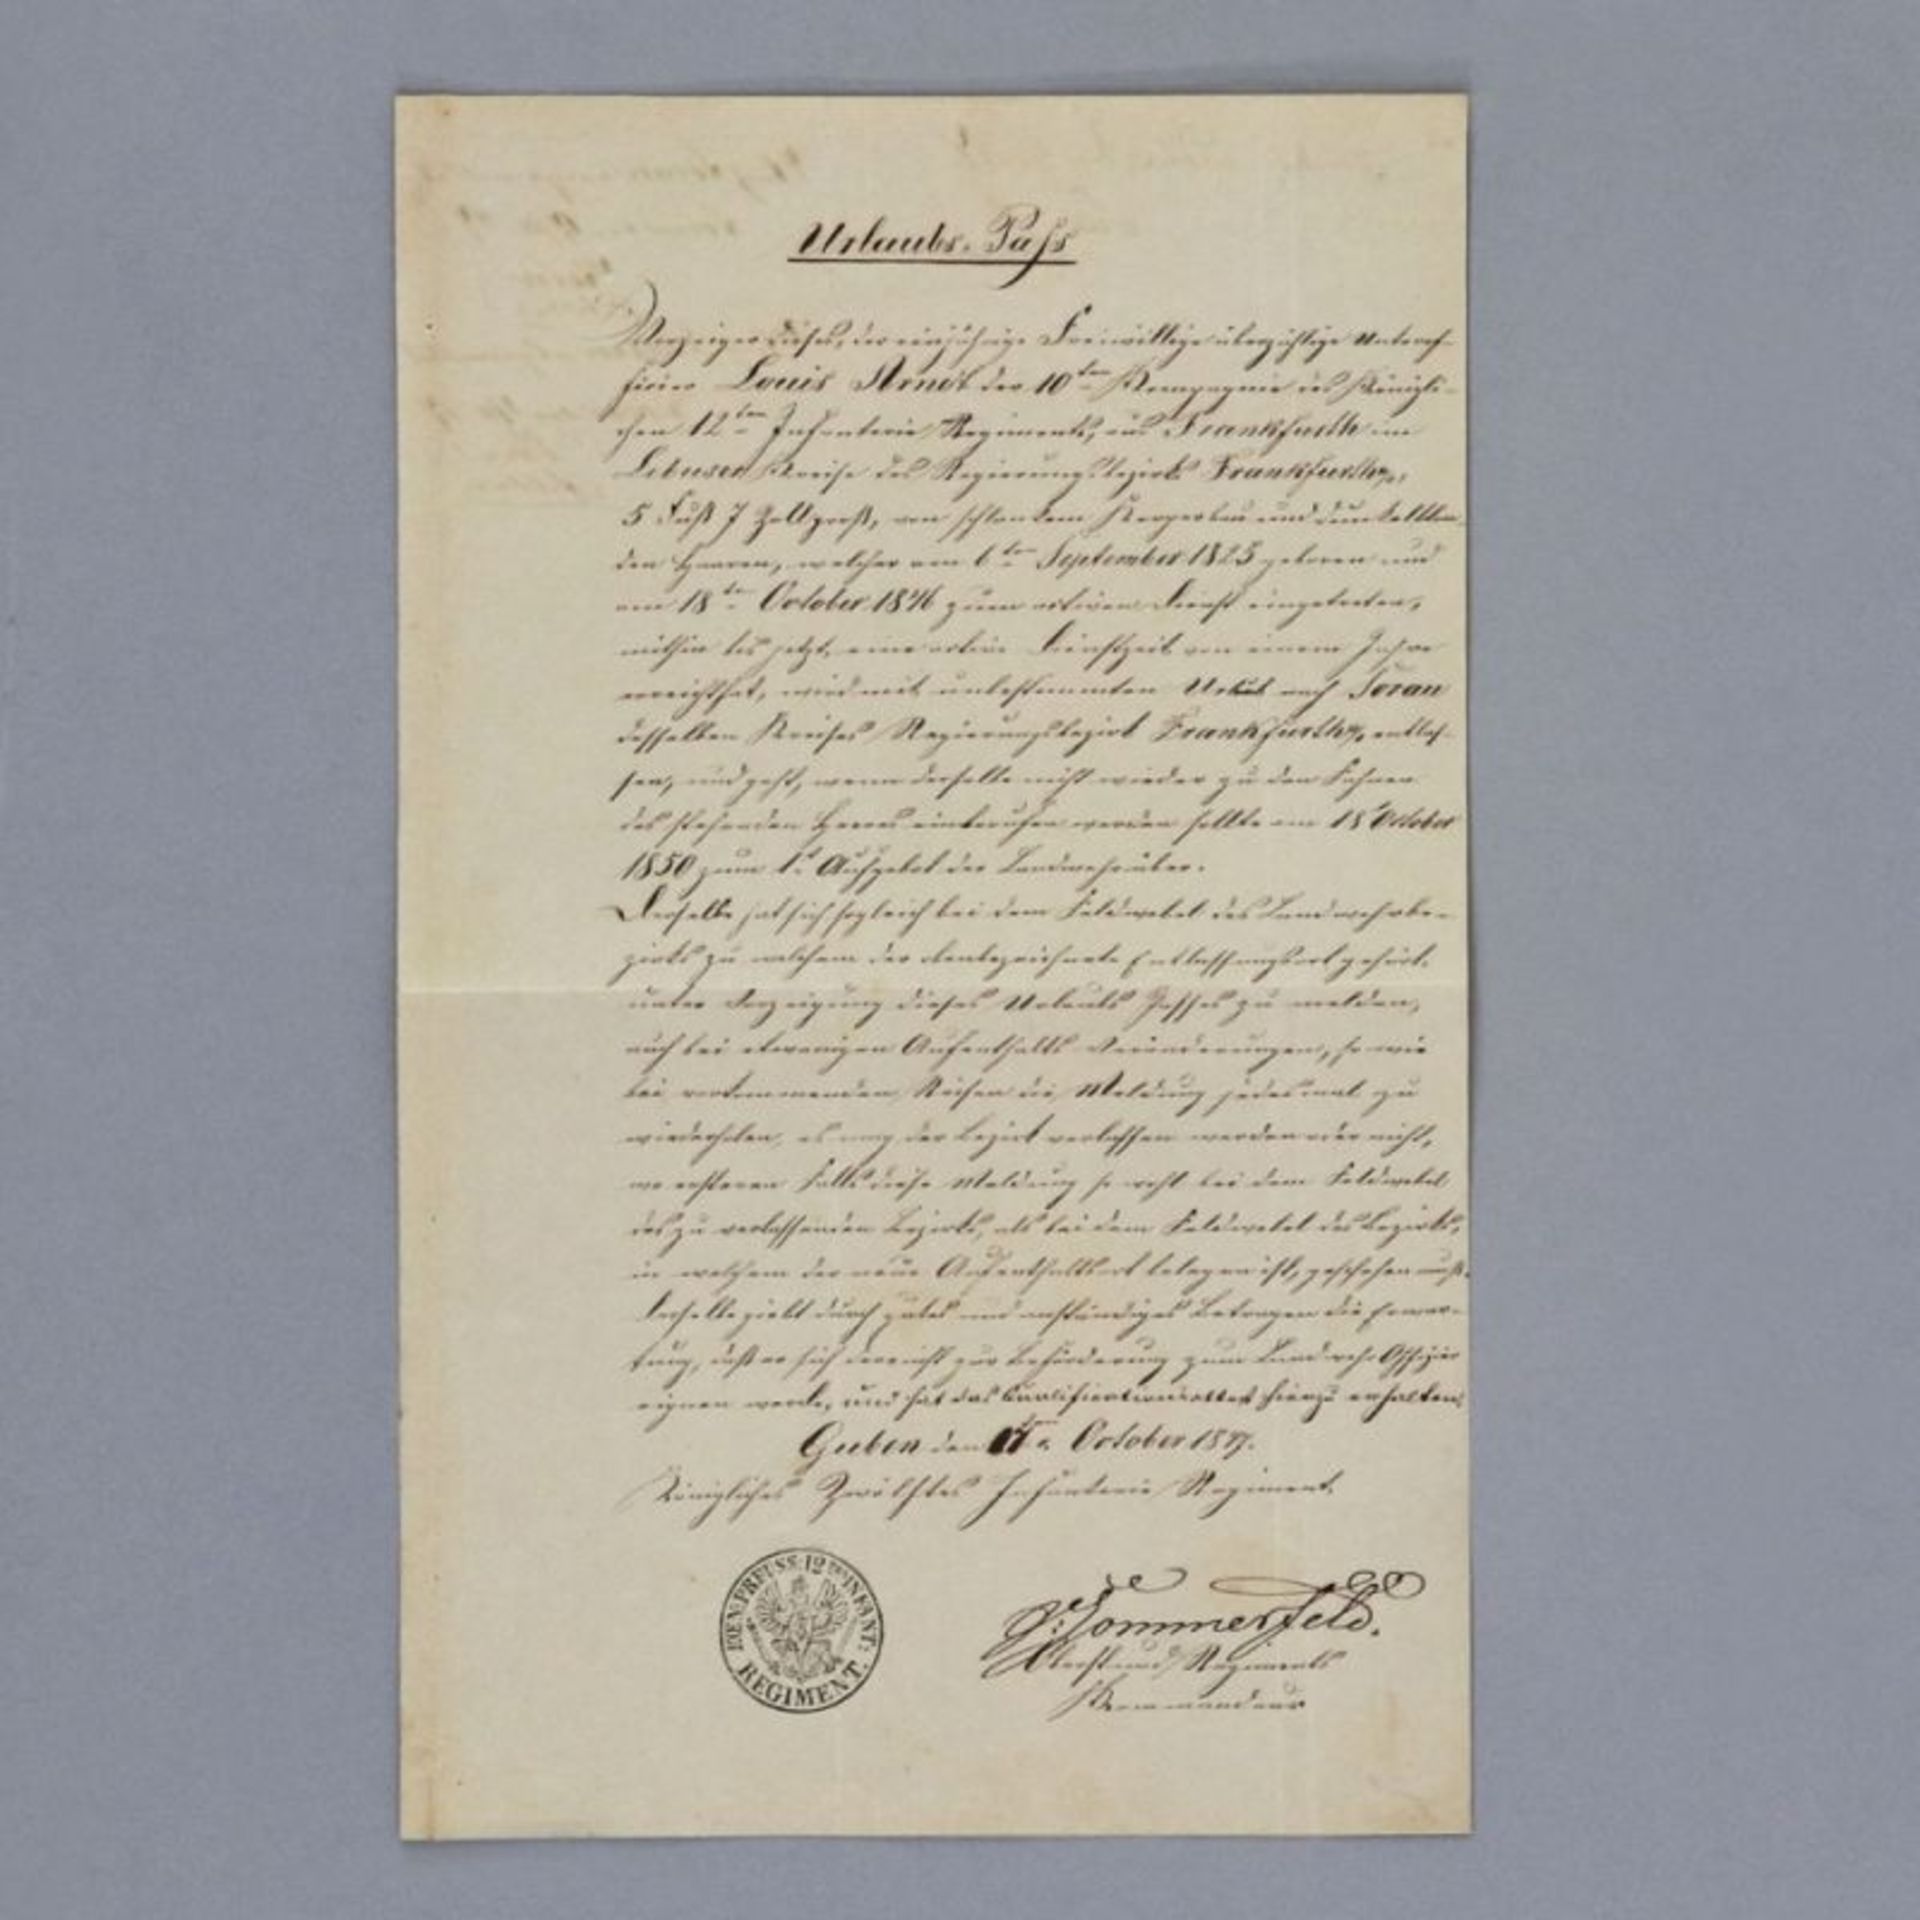 Urlaubs-Paß
Vorzeiger dieses, der einjährige Freiwillige überzählige Unterof-
fizier Louis Arndt der 10ten Kompagnie des Königli-
chen 12ten Infanterie Regiments, aus Frankfurth im
Lebuser Kreise des Regierungsbezirks Frankfurth
5 Fuß 7 Zoll groß, von schlankem Körperbau und dunkelblon-
den Haaren, welcher am 6ten September 1825 geboren und
am 18ten October 1846 zum activen Dienst eingetreten,
mithin bis jetzt, eine active Dienstzeit von einem Jahre
erreicht hat, wird mit unbestimmten Urlaub nach Sorau
desselben Kreises Regierungsbezirk Frankfurth entlas-
sen, und geht, wenn derselbe nicht wieder zu den Fahnen
des stehenden Heeres einberufen werden sollte am 18t October
1850 zum 1t Aufgebot der Landwehr über.
Derselbe hat sich sogleich bei dem Feldwebel des Landwehrbe-
zirks zu welchem der obenbezeichnete Entlassungsort gehört.
unter Vorzeigung dieses Urlaubs Passes zu melden,
auch bei etwanigen Aufenthalts Veränderungen, so wie
bei vorkommenden Reisen die Meldung jedesmal zu
wiederholen, es mag der Bezirk verlassen werden oder nicht,
wo ersteren Falls diese Meldung so wohl bei dem Feldwebel
des zu verlassenden Bezirks, als bei dem Feldwebel des Bezirks,
in welchem der neue Aufenthaltsort belegen ist, geschehen muß.
Derselbe giebt durch gutes und anständiges Betragen die Erwar-
tung, daß er sich dereinst zur Beförderung zum Landwehr Offizier
eignen werde, und hat das Qualificationsattest hierzu erhalten.
Guben den October 1847.
Königliches Zwölftes Infanterie Regiment.
KŒN: PREUSS: 12tes INFANT: REGIMENT.
v. Sommerfeld.
Oberst und Regiments
Kommandeur